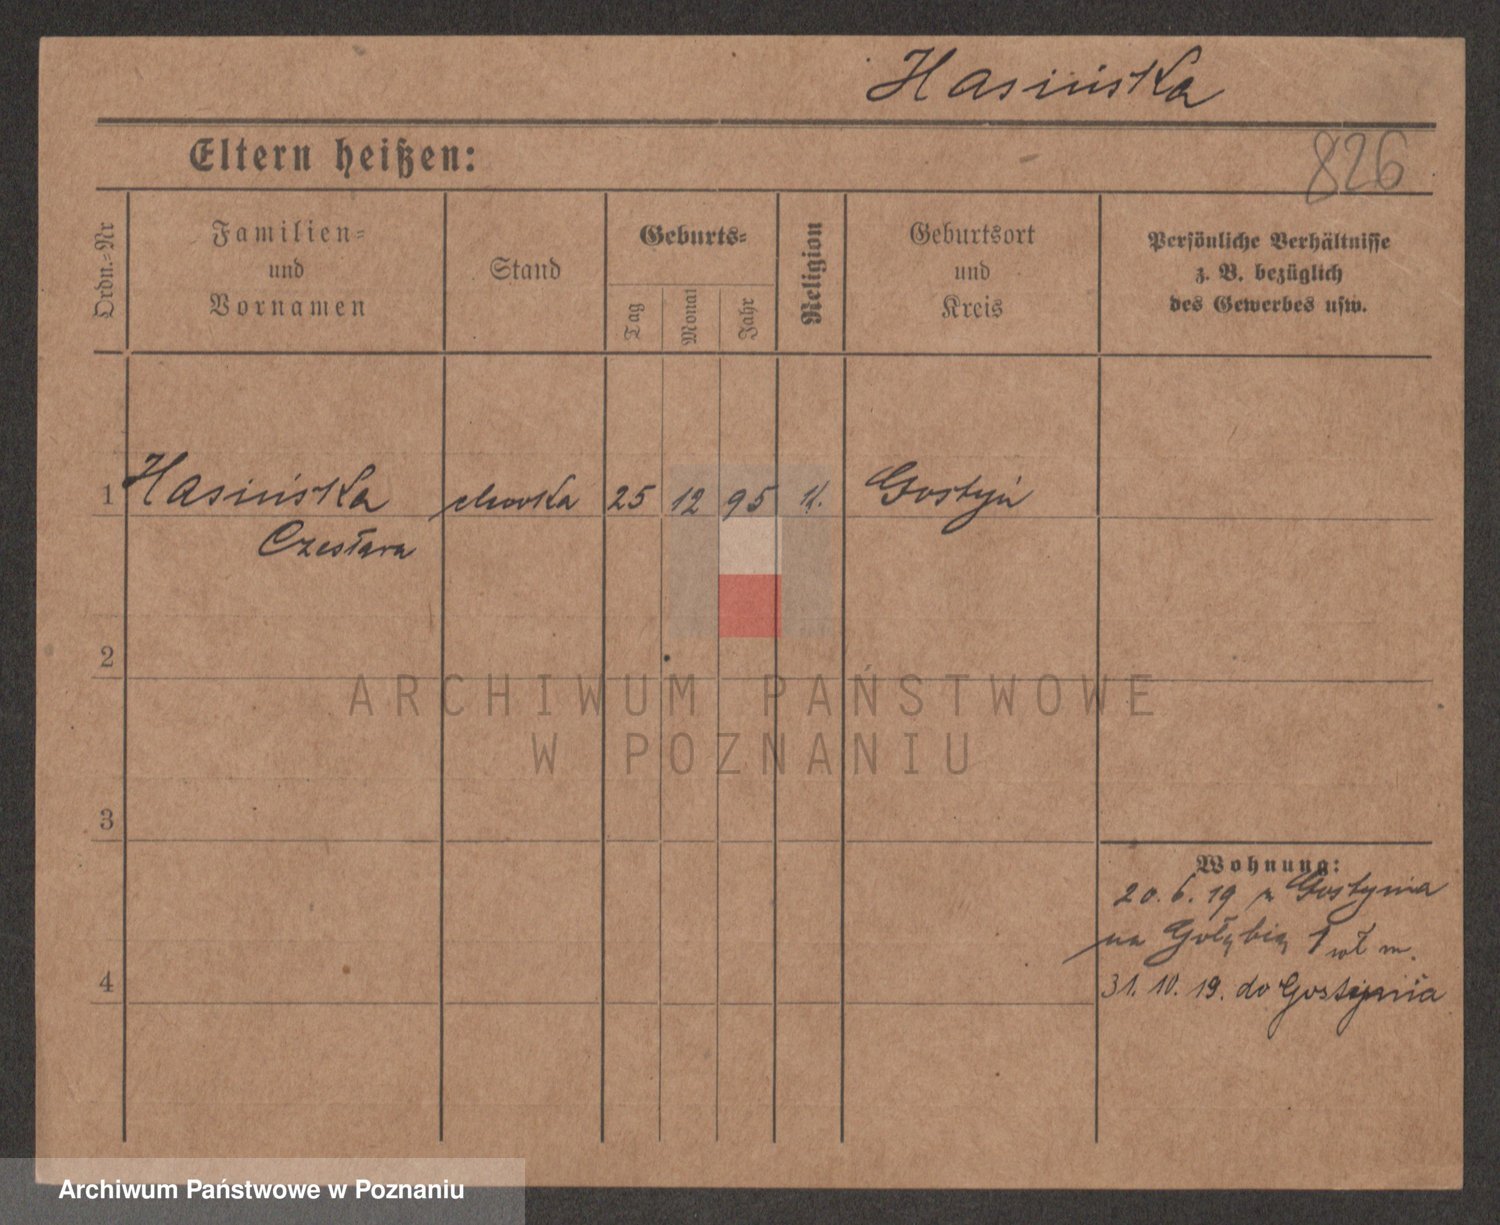 Hasińska
Eltern heißen:
826
Ordn.=Nr
Familien=
und
Vornamen
Stand
Geburts=
Tag
Monat
Jahr
Religion
Geburtsort
und
Kreis
Persönliche Verhältnisse
z. B. bezüglich
des Gewerbes usw.
1 Hasińska 25 12 95 k. Gostyń
Czesława
2
ARCHIWUM PAŃSTWOWE
W POZNANIU
3
Wohnung:
20.6.19 z Gostynia
na Gołębią 1 m.
4
31.10.19. do Gostynia
Archiwum Państwowe w Poznaniu